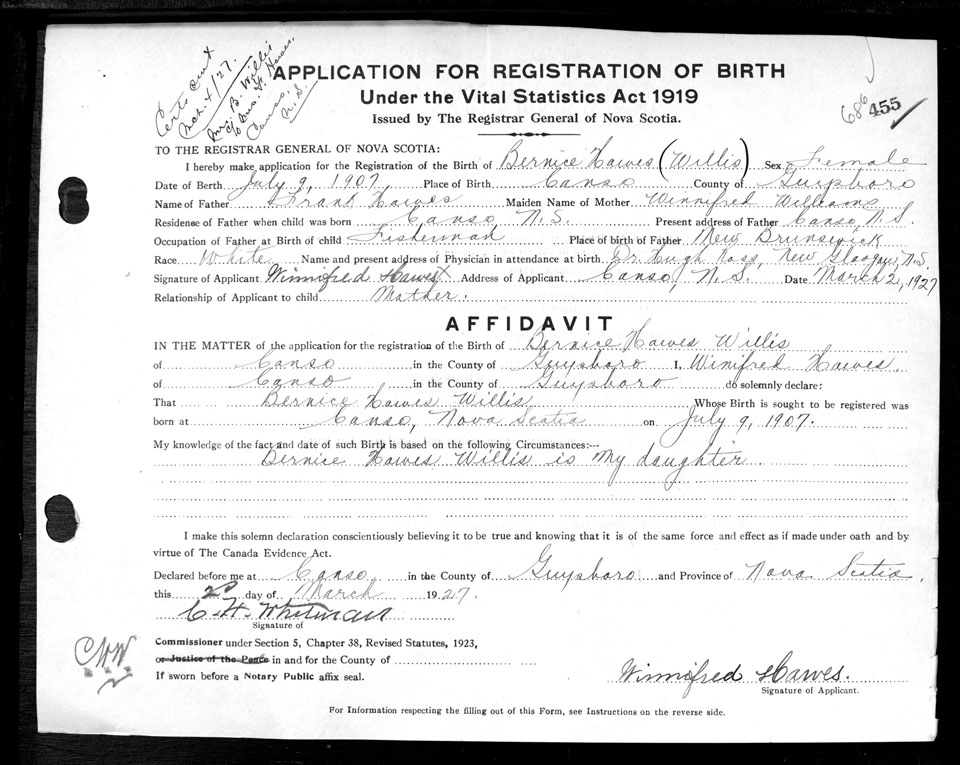 Certs sent
Mch. 4/27.
Mrs. B. Willis
c/o Mrs. F. Hawes,
Canso,
N.S.
686
455
APPLICATION FOR REGISTRATION OF BIRTH
Under the Vital Statistics Act 1919
Issued by The Registrar General of Nova Scotia.
TO THE REGISTRAR GENERAL OF NOVA SCOTIA:
I hereby make application for the Registration of the Birth of Bernice Hawes (Willis) Sex Female
Date of Berth July 9, 1907 Place of Birth Canso County of Guysboro
Name of Father Frank Hawes Maiden Name of Mother Winnifred Williams
Residence of Father when child was born Canso N.S. Present address of Father Canso, N.S.
Occupation of Father at Birth of child Fisherman Place of birth of Father New Brunswick
Race White Name and present address of Physician in attendance at birth Dr. Hugh Ross, New Glasgow, N.S.
Signature of Applicant Winnifred Hawes Address of Applicant Canso, N.S. Date March 2, 1927
Relationship of Applicant to child Mother.
AFFIDAVIT
IN THE MATTER of the application for the registration of the Birth of Bernice Hawes Willis
of Canso in the County of Guysboro I, Winifred Hawes,
of Canso in the County of Guysboro do solemnly declare:
That Bernice Hawes Willis Whose Birth is sought to be registered was
born at Canso, Nova Scotia on July 9, 1907.
My knowledge of the fact and date of such Birth is based on the following Circumstances:--
Bernice Hawes Willis is my daughter
I make this solemn declaration conscientiously believing it to be true and knowing that it is of the same force and effect as if made under oath and by
virtue of The Canada Evidence Act.
Declared before me at Canso, in the County of Guysboro and Province of Nova Scotia,
this 2nd day of March 1927.
C. H. Whitman
Signature of
Commissioner under Section 5, Chapter 38, Revised Statutes, 1923,
or Justice of the Peace in and for the County of
If sworn before a Notary Public affix seal.
Winnifred Hawes.
Signature of Applicant.
For Information respecting the filling out of this Form, see Instructions on the reverse side.